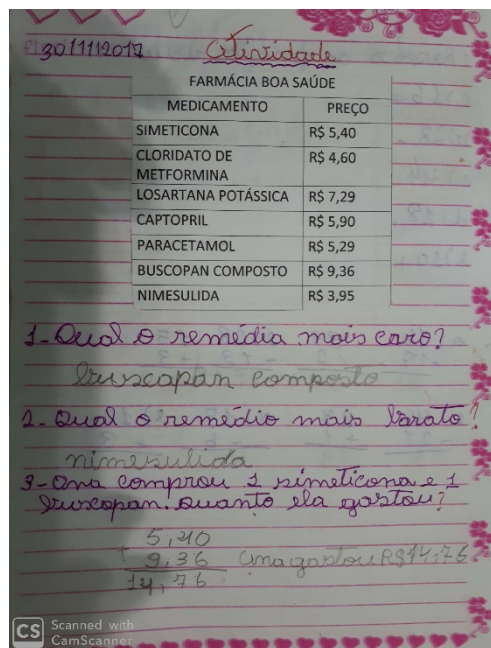 30/11/2017 Atividade
FARMÁCIA BOA SAÚDE
MEDICAMENTO PREÇO
SIMETICONA R$ 5,40
CLORIDATO DE METFORMINA R$ 4,60
LOSARTANA POTÁSSICA R$ 7,29
CAPTOPRIL R$ 5,90
PARACETAMOL R$ 5,29
BUSCOPAN COMPOSTO R$ 9,36
NIMESULIDA R$ 3,95
1-Qual o remédia mais caro?
buscapan composto
2-Qual o remédio mais barato?
nimesulida
3-Ana comprou 1 simeticona e 1
buscopan. Quanto ela gastou?
5,40
+ 9,36 Ana gastou R$ 14,76
14,76
CS Scanned with
CamScanner